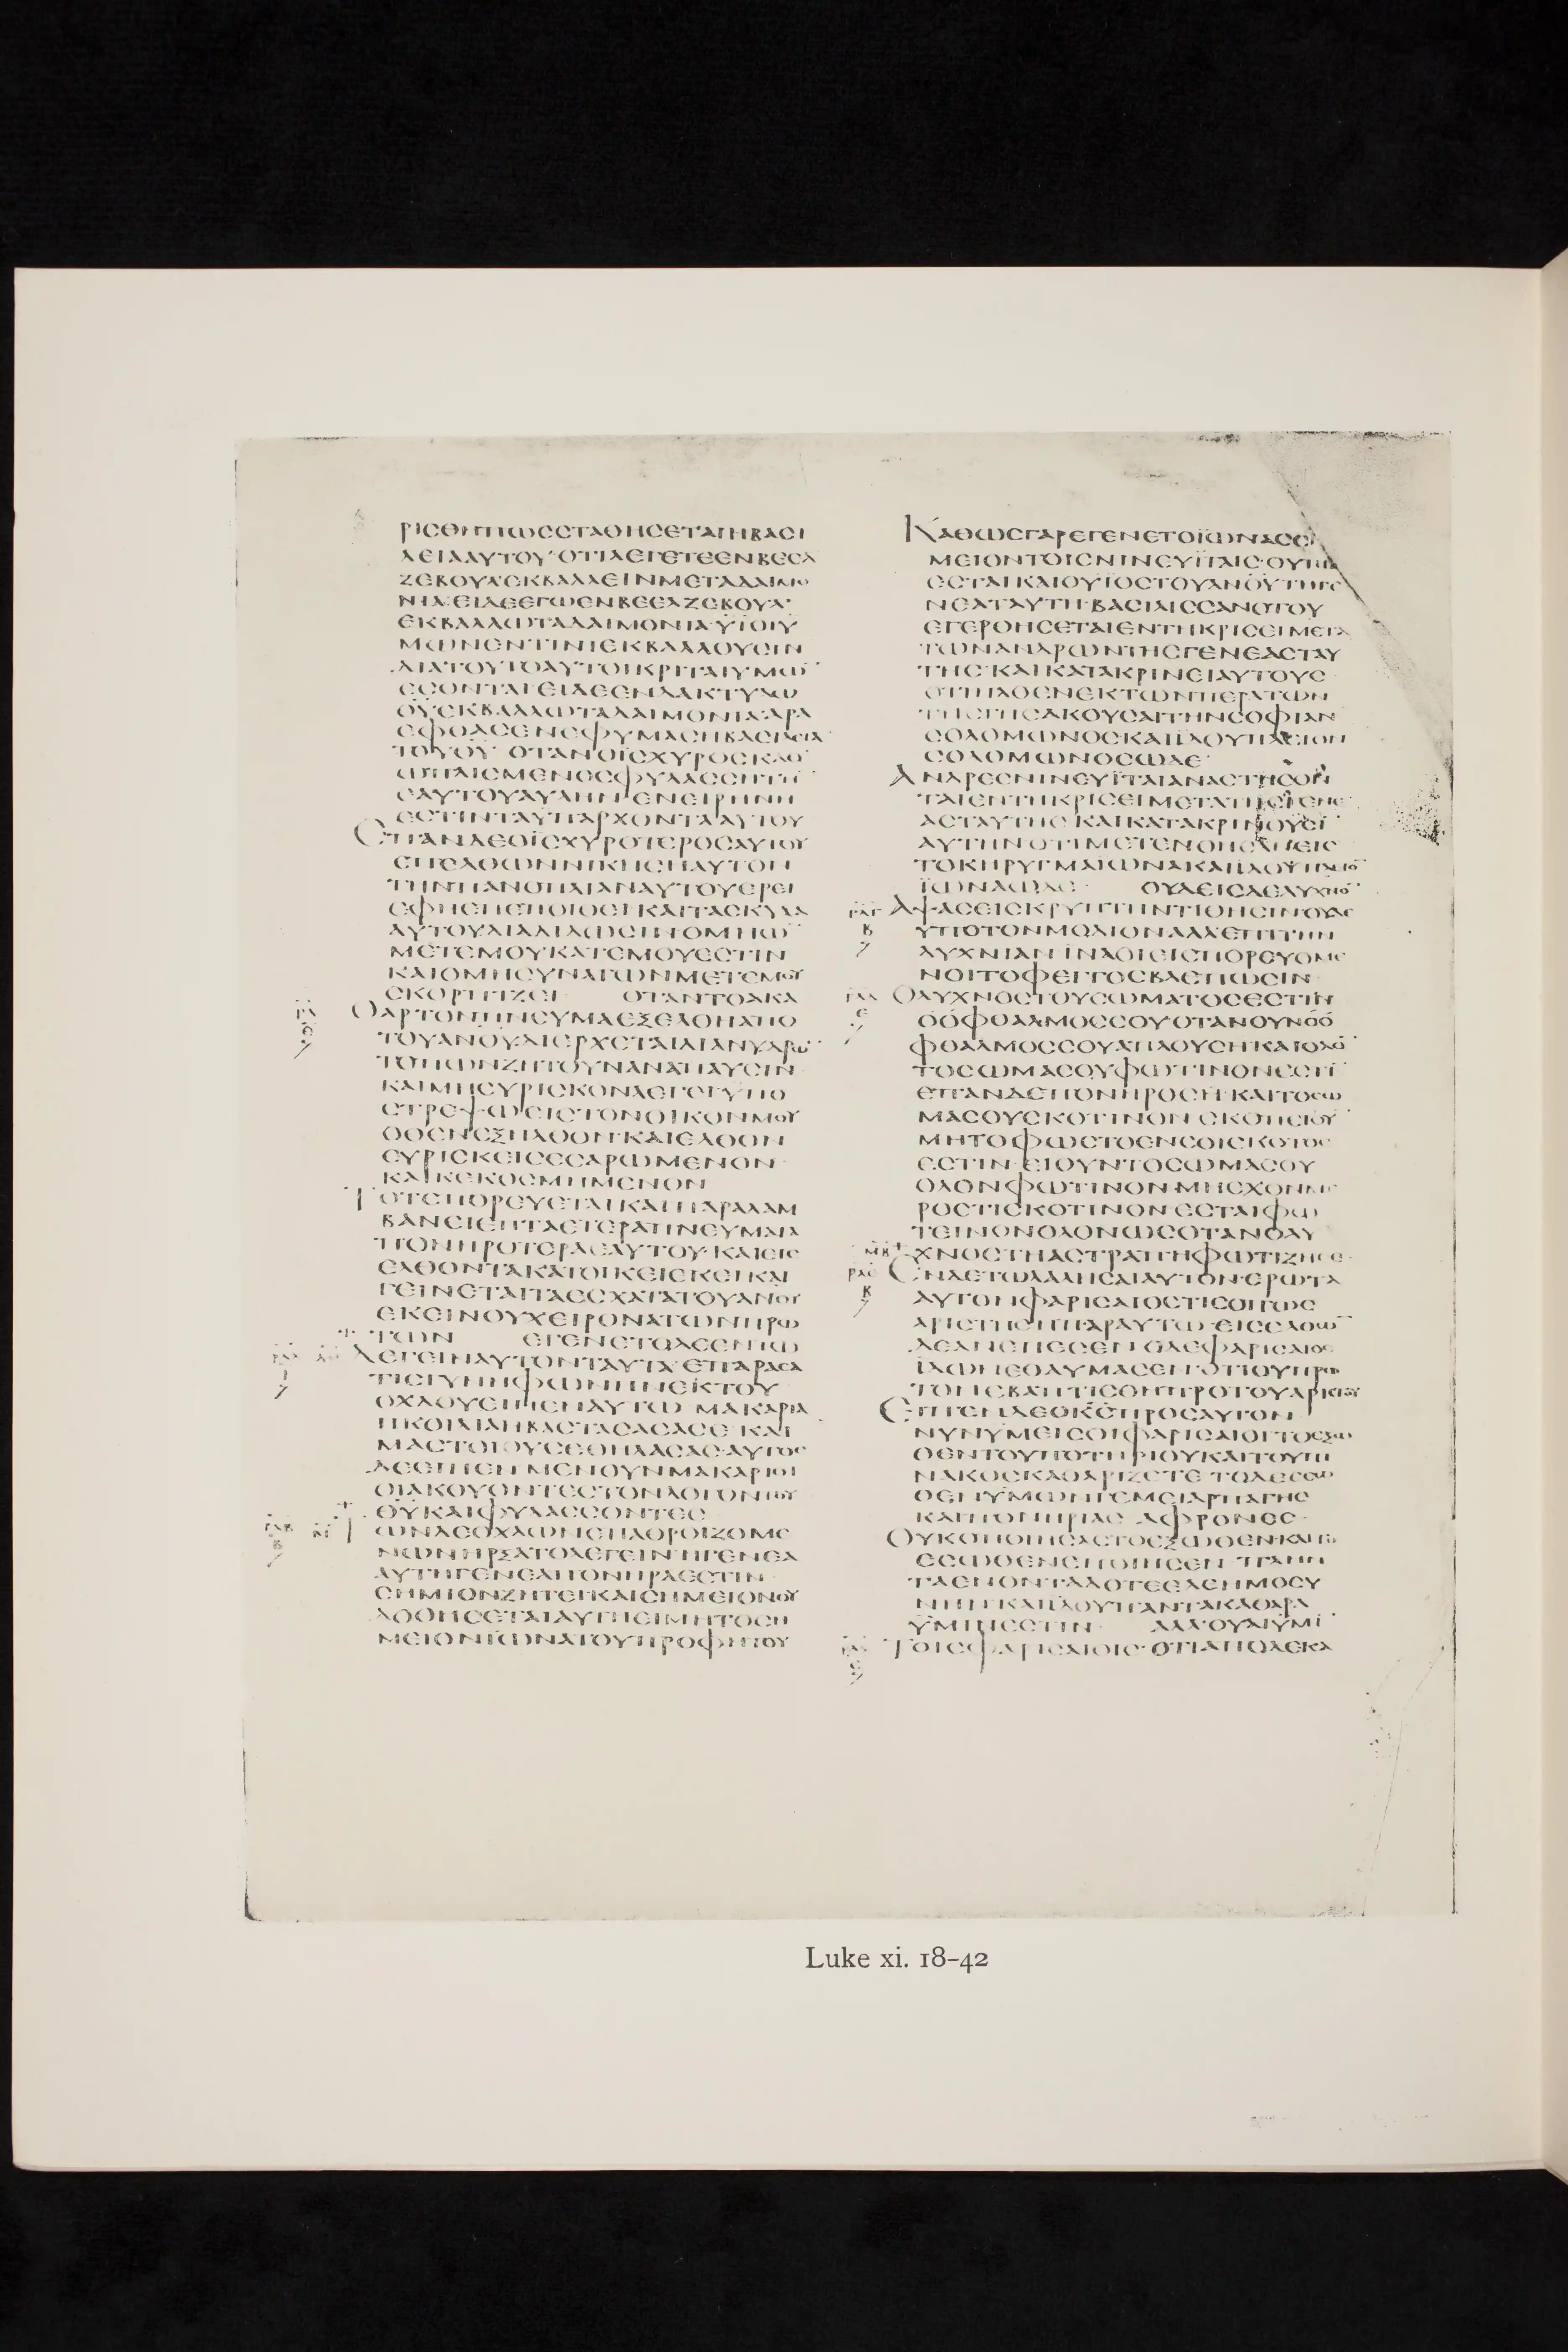 ΡΙϹΘΗΠΩϹϹΤΑΘΗϹΕΤΑΙΗΒΑϹΙ
ΛΕΙΑΑΥΤΟΥ·ΟΤΙΛΕΓΕΤΕΕΝΒΕΕΛ
ΖΕΒΟΥΛ·ΕΚΒΑΛΛΕΙΝΜΕΤΑΔΑΙΜΟ
ΝΙΑ·ΕΙΔΕΕΓΩΕΝΒΕΕΛΖΕΒΟΥΛ·
ΕΚΒΑΛΛΩΤΑΔΑΙΜΟΝΙΑ·ΫΪΟΙΫ
ΜΩΝΕΝΤΙΝΙΕΚΒΑΛΛΟΥϹΙΝ
ΔΙΑΤΟΥΤΟΑΥΤΟΙΚΡΙΤΑΙΥΜΩ̅
ΕϹΟΝΤΑΙ·ΕΙΔΕΕΝΔΑΚΤΥΛΩ
ΘΥ̅ΕΚΒΑΛΛΩΤΑΔΑΙΜΟΝΙΑ·ΑΡΑ
ΕΦΘΑϹΕΝΕΦΥΜΑϹΗΒΑϹΙΛΕΙΑ
ΤΟΥΘΥ̅ ΟΤΑΝΟΪϹΧΥΡΟϹΚΑΘ
ΩΠΛΙϹΜΕΝΟϹΦΥΛΑϹϹΗΤΗ̅
ΕΑΥΤΟΥΑΥΛΗΝ·ΕΝΕΙΡΗΝΗ
ΕϹΤΙΝΤΑΫΠΑΡΧΟΝΤΑΑΥΤΟΥ
ΕΠΑΝΔΕΟΪϹΧΥΡΟΤΕΡΟϹΑΥΤΟΥ
ΕΠΕΛΘΩΝΝΙΚΗϹΗΑΥΤΟΝ
ΤΗΝΠΑΝΟΠΛΙΑΝΑΥΤΟΥΕΡΕΙ
ΕΦΗϹΕΠΕΠΟΙΘΕΙ·ΚΑΙΤΑϹΚΥΛΑ
ΑΥΤΟΥΔΙΑΔΙΔΩϹΙΝΟΜΗΩ̅
ΜΕΤΕΜΟΥΚΑΤΕΜΟΥΕϹΤΙΝ
ΚΑΙΟΜΗϹΥΝΑΓΩΝΜΕΤΕΜΟΥ
ϹΚΟΡΠΙΖΕΙ ΟΤΑΝΤΟΑΚΑ
ΘΑΡΤΟΝΠΝΕΥΜΑΕΞΕΛΘΗΑΠΟ
ΤΟΥΑΝΟΥ̅ΔΙΕΡΧΕΤΑΙΔΙΑΝΥΔΡΩ̅
ΤΟΠΩΝΖΗΤΟΥΝΑΝΑΠΑΥϹΙΝ
ΚΑΙΜΗΕΥΡΙϹΚΟΝΛΕΓΕΙΫΠΟ
ϹΤΡΕΨΩΕΙϹΤΟΝΟΙΚΟΝΜΟΥ
ΟΘΕΝΕΞΗΛΘΟΝ·ΚΑΙΕΛΘΟΝ
ΕΥΡΙϹΚΕΙϹΕϹΑΡΩΜΕΝΟΝ
ΚΑΙΚΕΚΟϹΜΗΜΕΝΟΝ
ΤΟΤΕΠΟΡΕΥΕΤΑΙΚΑΙΠΑΡΑΛΑΜ
ΒΑΝΕΙΕΠΤΑΕΤΕΡΑΠΝΕΥΜΑΤΑ
ΠΟΝΗΡΟΤΕΡΑΕΑΥΤΟΥ·ΚΑΙΕΙϹ
ΕΛΘΟΝΤΑΚΑΤΟΙΚΕΙΕΚΕΙ·ΚΑΙ
ΓΕΙΝΕΤΑΙΤΑΕϹΧΑΤΑΤΟΥΑΝΟΥ
ΕΚΕΙΝΟΥΧΕΙΡΟΝΑΤΩΝΠΡΩ
ΤΩΝ ΕΓΕΝΕΤΟΔΕΕΝΤΩ
ΛΕΓΕΙΝΑΥΤΟΝΤΑΥΤΑ·ΕΠΑΡΑϹΑ
ΤΙϹΓΥΝΗΦΩΝΗΝΕΚΤΟΥ
ΟΧΛΟΥΕΙΠΕΝΑΥΤΩ ΜΑΚΑΡΙΑ
ΗΚΟΙΛΙΑΗΒΑϹΤΑϹΑϹΑϹΕ·ΚΑΙ
ΜΑϹΤΟΙΟΥϹΕΘΗΛΑϹΑϹ·ΑΥΤΟϹ
ΔΕΕΙΠΕΝ ΜΕΝΟΥΝΜΑΚΑΡΙΟΙ
ΟΙΑΚΟΥΟΝΤΕϹΤΟΝΛΟΓΟΝΤΟΥ
ΘΥ̅ΚΑΙΦΥΛΑϹϹΟΝΤΕϹ
ΤΩΝΔΕΟΧΛΩΝΕΠΑΘΡΟΙΖΟΜΕ
ΝΩΝΗΡΞΑΤΟΛΕΓΕΙΝ·ΗΓΕΝΕΑ
ΑΥΤΗΓΕΝΕΑΠΟΝΗΡΑΕϹΤΙΝ
ϹΗΜΙΟΝΖΗΤΕΙ·ΚΑΙϹΗΜΕΙΟΝΟΥ
ΔΟΘΗϹΕΤΑΙΑΥΤΗΕΙΜΗΤΟϹΗ
ΜΕΙΟΝΪΩΝΑΤΟΥΠΡΟΦΗΤΟΥ
ΚΑΘΩϹΓΑΡΕΓΕΝΕΤΟΪΩΝΑϹϹΗ
ΜΕΙΟΝΤΟΙϹΝΙΝΕΥΪΤΑΙϹ·ΟΥΤΩϹ
ΕϹΤΑΙΚΑΙΟΥΪΟϹΤΟΥΑΝΟΥ̅ΤΗΓΕ
ΝΕΑΤΑΥΤΗ·ΒΑϹΙΛΙϹϹΑΝΟΤΟΥ
ΕΓΕΡΘΗϹΕΤΑΙΕΝΤΗΚΡΙϹΕΙΜΕΤΑ
ΤΩΝΑΝΔΡΩΝΤΗϹΓΕΝΕΑϹΤΑΥ
ΤΗϹ·ΚΑΙΚΑΤΑΚΡΙΝΕΙΑΥΤΟΥϹ
ΟΤΙΗΛΘΕΝΕΚΤΩΝΠΕΡΑΤΩΝ
ΤΗϹΓΗϹΑΚΟΥϹΑΙΤΗΝϹΟΦΙΑΝ
ϹΟΛΟΜΩΝΟϹΚΑΙΪΔΟΥΠΛΕΙΟΝ
ϹΟΛΟΜΩΝΟϹΩΔΕ·
ΑΝΔΡΕϹΝΙΝΕΥΪΤΑΙΑΝΑϹΤΗϹΟΝ
ΤΑΙΕΝΤΗΚΡΙϹΕΙΜΕΤΑΤΗϹΓΕΝΕ
ΑϹΤΑΥΤΗϹ·ΚΑΙΚΑΤΑΚΡΙΝΟΥϹΙ
ΑΥΤΗΝΟΤΙΜΕΤΕΝΟΗϹΑΝΕΙϹ
ΤΟΚΗΡΥΓΜΑΪΩΝΑΚΑΙΪΔΟΥΠΛΕΙΟ̅
ΪΩΝΑΩΔΕ· ΟΥΔΕΙϹΔΕΛΥΧΝΟ̅
ΑΨΑϹΕΙϹΚΡΥΠΤΗΝΤΙΘΗϹΙΝ·ΟΥΔΕ
ΥΠΟΤΟΝΜΟΔΙΟΝΑΛΛΕΠΙΤΗΝ
ΛΥΧΝΙΑΝ ΪΝΑΟΙΕΙϹΠΟΡΕΥΟΜΕ
ΝΟΙΤΟΦΕΓΓΟϹΒΛΕΠΩϹΙΝ
ΟΛΥΧΝΟϹΤΟΥϹΩΜΑΤΟϹΕϹΤΙΝ
ΟΟΦΘΑΛΜΟϹϹΟΥΟΤΑΝΟΥΝΟΟ
ΦΘΑΛΜΟϹϹΟΥΑΠΛΟΥϹΗΚΑΙΟΛΟ̅
ΤΟϹΩΜΑϹΟΥΦΩΤΙΝΟΝΕϹΤΙ̅
ΕΠΑΝΔΕΠΟΝΗΡΟϹΗ·ΚΑΙΤΟϹΩ
ΜΑϹΟΥϹΚΟΤΙΝΟΝ ϹΚΟΠΕΙΟΥ̅
ΜΗΤΟΦΩϹΤΟΕΝϹΟΙϹΚΟΤΟϹ
ΕϹΤΙΝ·ΕΙΟΥΝΤΟϹΩΜΑϹΟΥ
ΟΛΟΝΦΩΤΙΝΟΝ·ΜΗΕΧΟΝΜΕ
ΡΟϹΤΙϹΚΟΤΙΝΟΝ·ΕϹΤΑΙΦΩ
ΤΕΙΝΟΝΟΛΟΝΩϹΟΤΑΝΟΛΥ
ΧΝΟϹΤΗΑϹΤΡΑΠΗΦΩΤΙΖΗϹΕ·
ΕΝΔΕΤΩΛΑΛΗϹΑΙΑΥΤΟΝ·ΕΡΩΤΑ
ΑΥΤΟΝΦΑΡΙϹΑΙΟϹΤΙϹΟΠΩϹ
ΑΡΙϹΤΗϹΗΠΑΡΑΥΤΩ·ΕΙϹΕΛΘΩ̅
ΔΕΑΝΕΠΕϹΕΝ ΟΔΕΦΑΡΙϹΑΙΟϹ
ΪΔΩΝΕΘΑΥΜΑϹΕΝ·ΟΤΙΟΥΠΡΩ
ΤΟΝΕΒΑΠΤΙϹΘΗΠΡΟΤΟΥΑΡΙϹΤΟΥ
ΕΙΠΕΝΔΕΟΚϹ̅ΠΡΟϹΑΥΤΟΝ
ΝΥΝΫΜΕΙϹΟΙΦΑΡΙϹΑΙΟΙΤΟΕΞΩ
ΘΕΝΤΟΥΠΟΤΗΡΙΟΥΚΑΙΤΟΥΠΙ
ΝΑΚΟϹΚΑΘΑΡΙΖΕΤΕ·ΤΟΔΕΕϹΩ
ΘΕΝΫΜΩΝΓΕΜΕΙΑΡΠΑΓΗϹ
ΚΑΙΠΟΝΗΡΙΑϹ ΑΦΡΟΝΕϹ·
ΟΥΧΟΠΟΙΗϹΑϹΤΟΕΞΩΘΕΝ·ΚΑΙΤΟ
ΕϹΩΘΕΝΕΠΟΙΗϹΕΝ ΠΛΗΝ
ΤΑΕΝΟΝΤΑΔΟΤΕΕΛΕΗΜΟϹΥ
ΝΗΝ·ΚΑΙΪΔΟΥΠΑΝΤΑΚΑΘΑΡΑ
ΫΜΙΝΕϹΤΙΝ· ΑΛΛΟΥΑΙΫΜΙ̅
ΤΟΙϹΦΑΡΙϹΑΙΟΙϹ·ΟΤΙΑΠΟΔΕΚΑ
Luke xi. 18–42